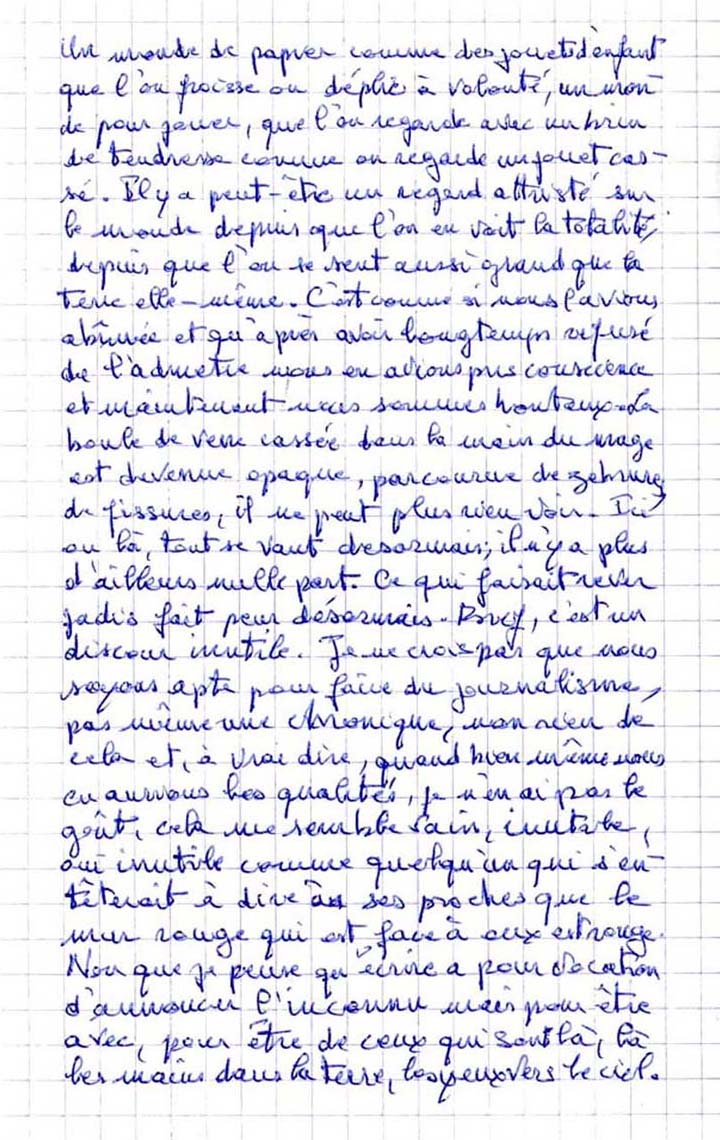 Un monde de papier comme des jouets d'enfant
que l'on froisse ou déplie à volonté, un mon
de pour jouer, que l'on regarde avec un brin
de tendresse comme on regarde un jouet cas-
sé. Il y a peut-être un regard attristé sur
le monde depuis que l'on en voit la totalité,
depuis que l'on se sent aussi grand que la
terre elle-même. C'est comme si nous l'avions
abîmée et qu'après avoir longtemps refusé
de l'admettre nous en avions pris conscience
et maintenant nous sommes honteux. La
boule de verre cassée dans la main du mage
est devenue opaque, parcourue de zébrures
de fissures, il ne peut plus rien voir. Ici
ou là, tout se vaut desormais; il n'y a plus
d'ailleurs nulle part. Ce qui faisait rever
jadis fait peur désormais. Bref, c'est un
discour inutile. Je ne crois pas que nous
soyons apte pour faire du journalisme,
pas même une chronique, non rien de
cela et, à vrai dire, quand bien même nous
en aurions les qualités, je n'en ai pas le
goût, cela me semble vain, inutile,
oui inutile comme quelqu'un qui s'en-
têterait à dire à ses proches que le
mur rouge qui est face à eux est rouge.
Non que je pense qu'écrire a pour vocation
d'annoncer l'inconnu mais pour être
avec, pour être de ceux qui sont là, là
les mains dans la terre, les yeux vers le ciel.